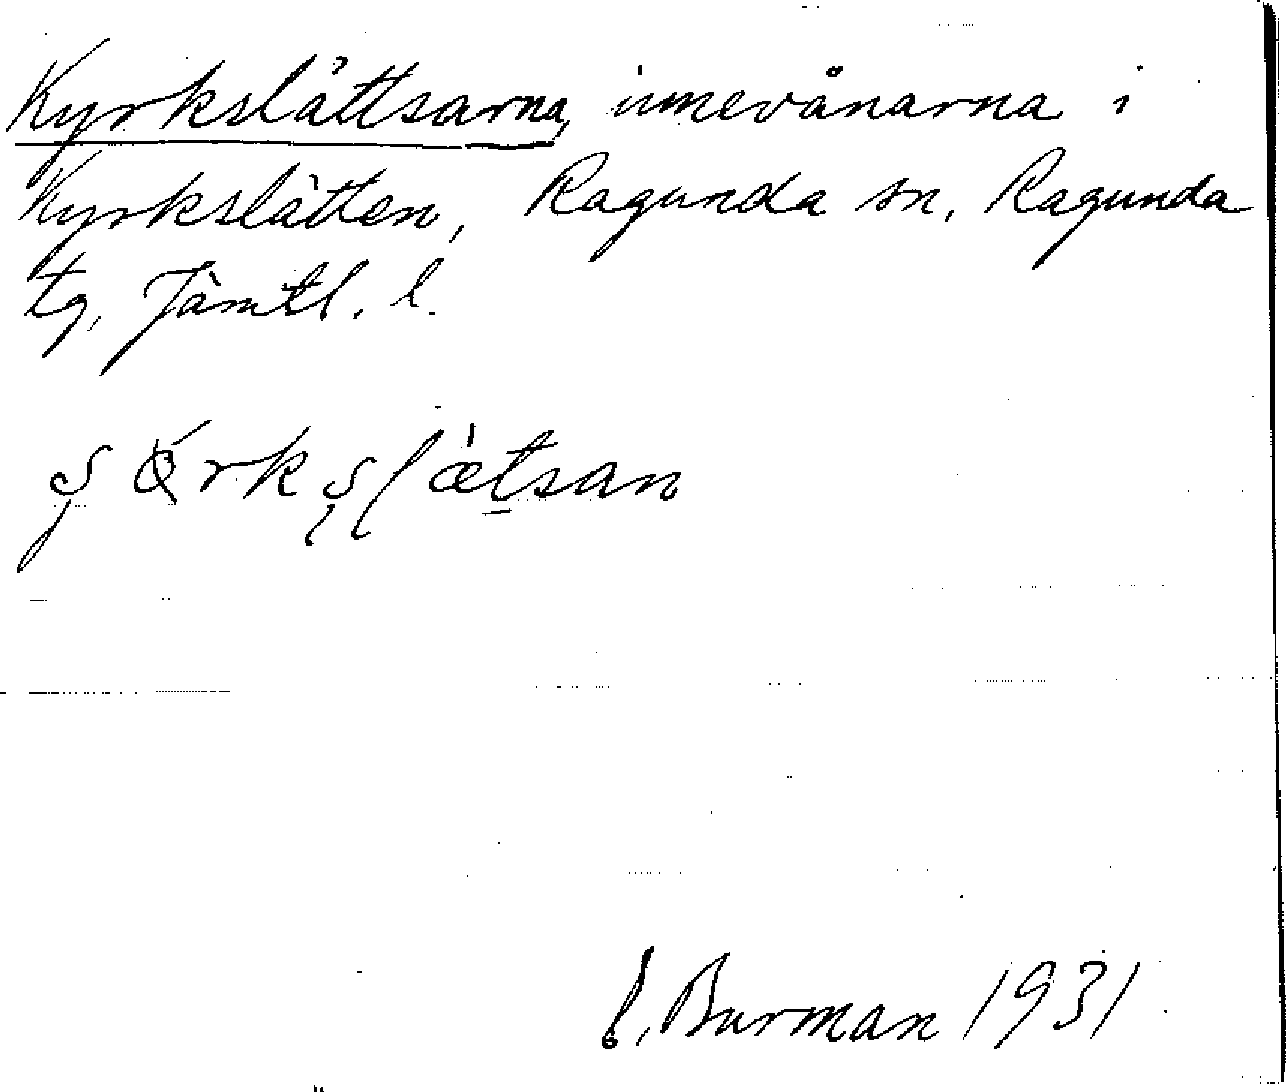 Kyrkslättsarna, innevånarna i
Kyrkslätten, Ragunda sn, Ragunda
tg, Jämtl. l.
Burman 1931